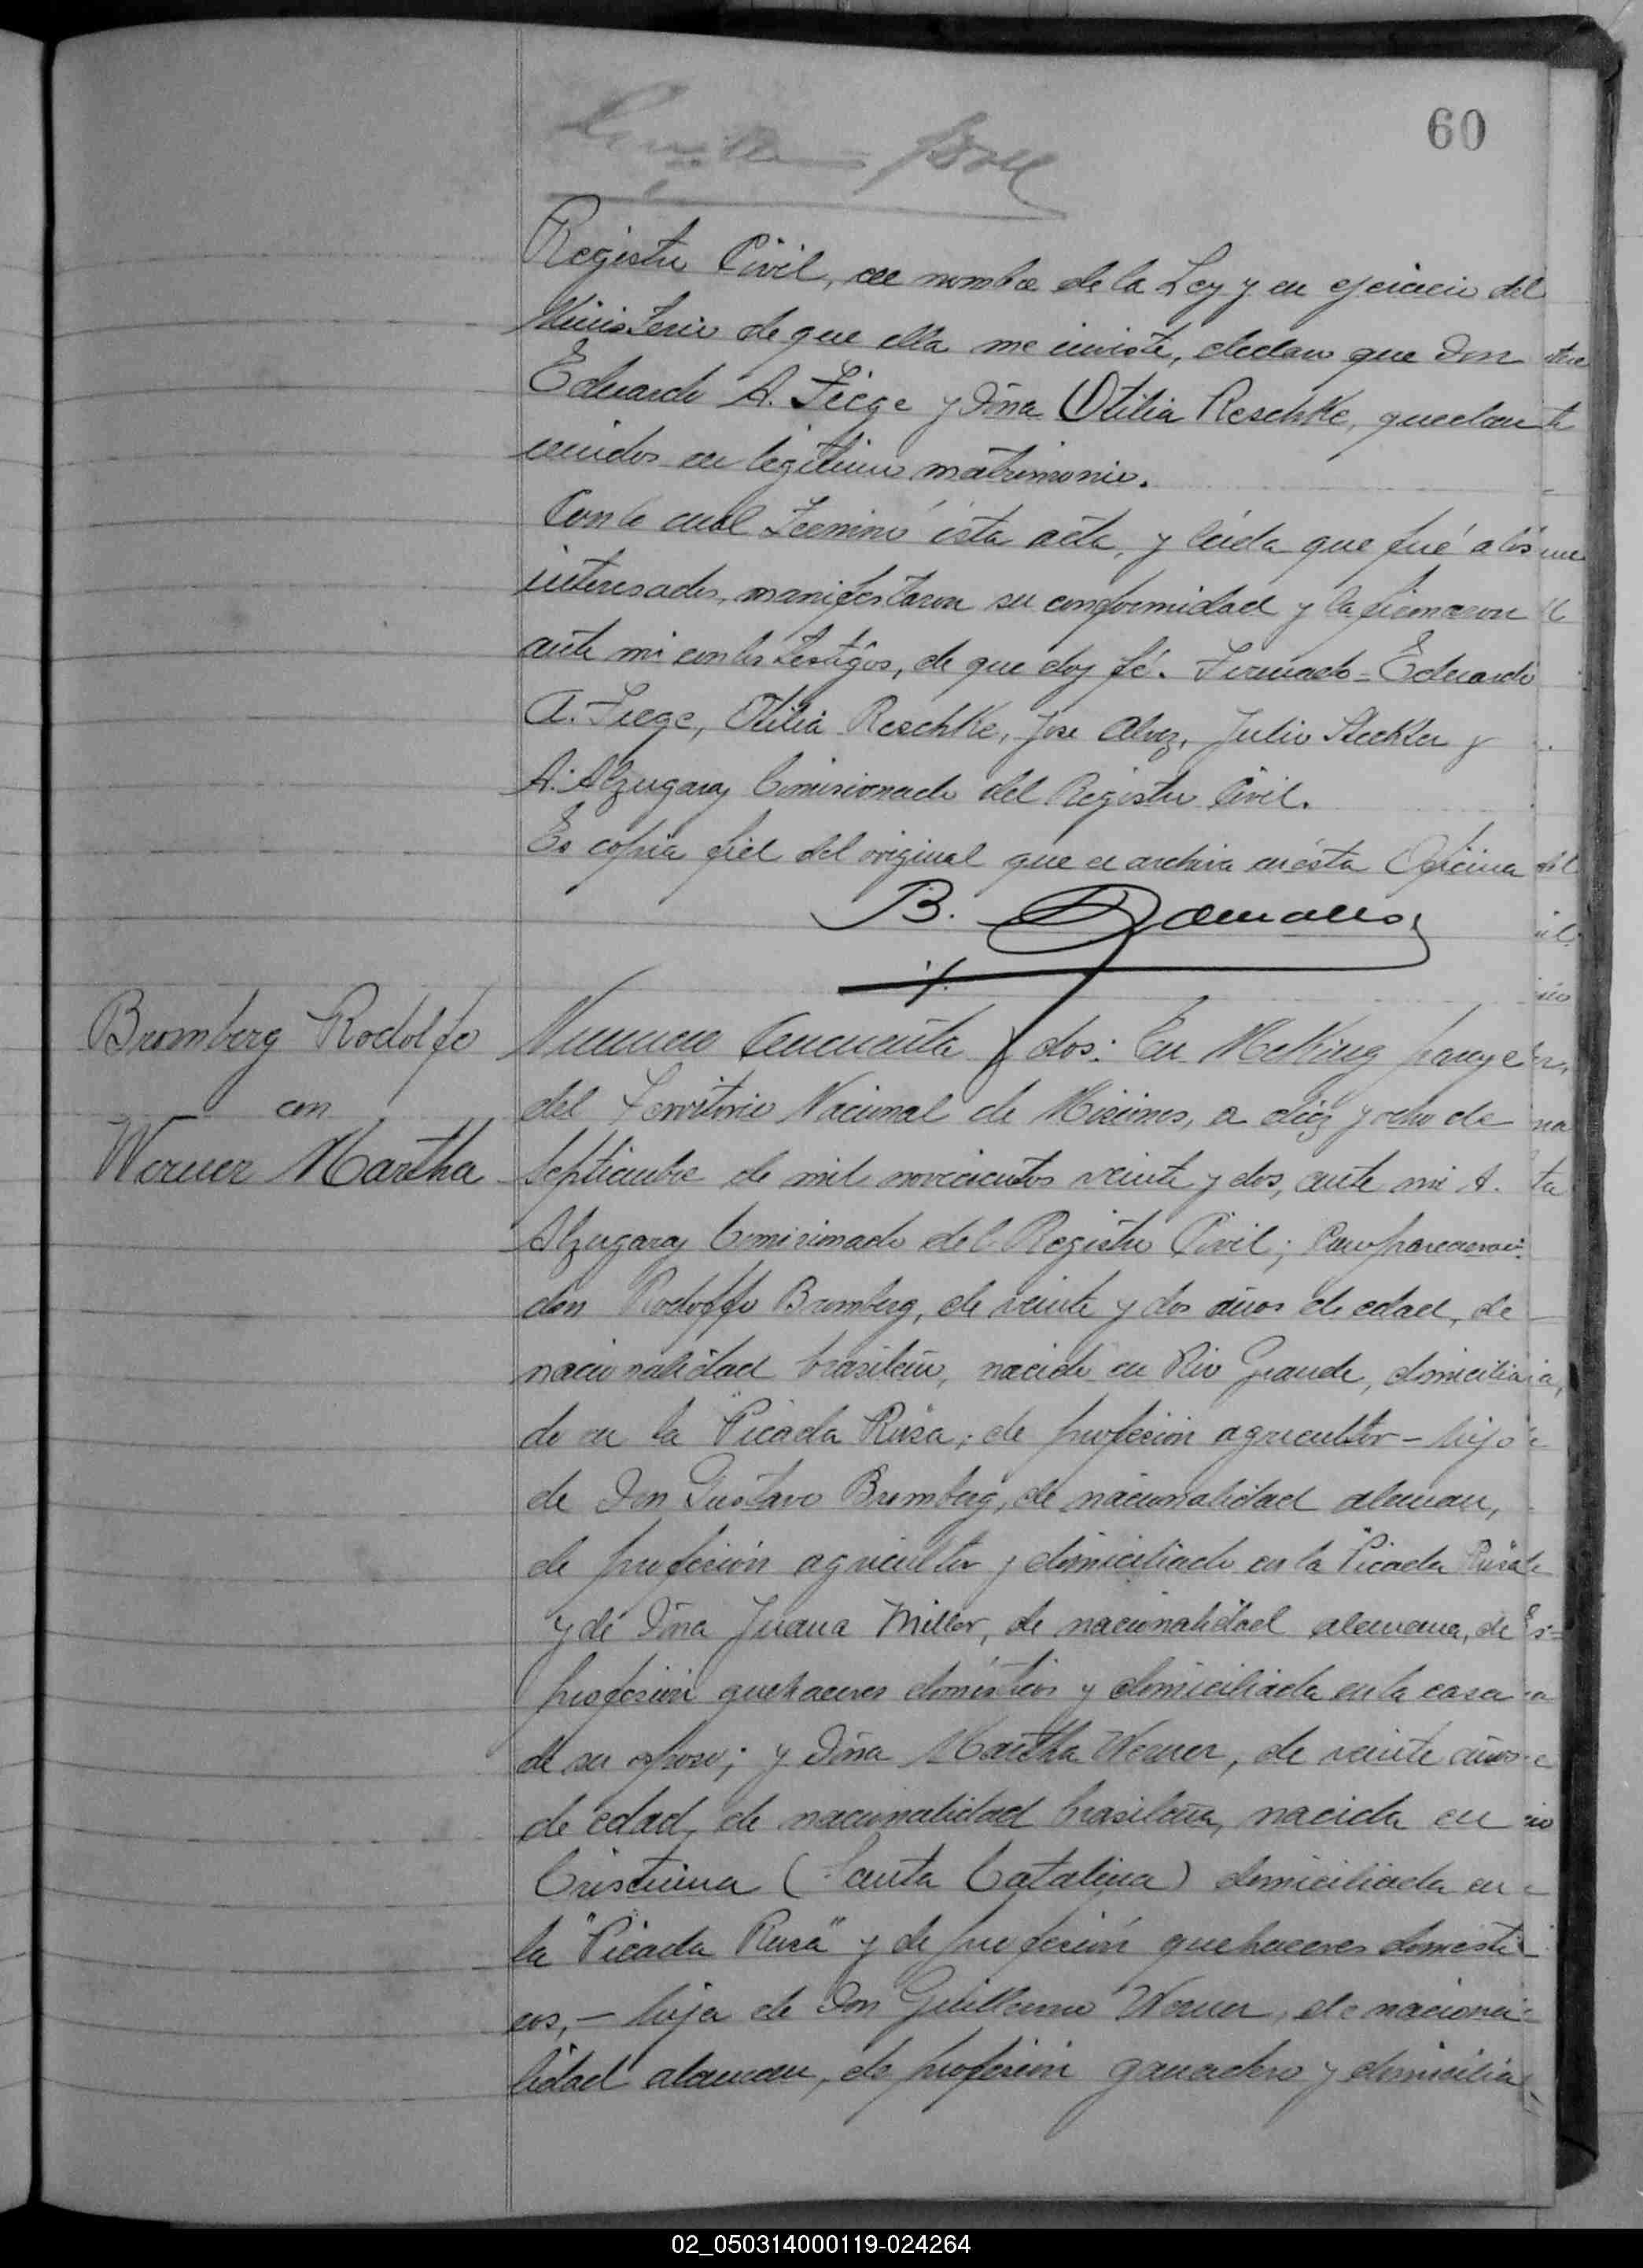 60
Registro Civil, en nombre de la Ley y en ejercicio del
Ministerio de que ella me inviste, declaro que Don
Eduardo A. Fiege y Doña Otilia Reschke, quedan
unidos en legitimo matrimonio.
Con lo cual terminó ésta acta, y leida que fué a los
interesados, manifestaron su conformidad y la firmaron
ante mi con los testigos, de que doy fé. Firmado = Eduardo
A. Fiege, Otilia Reschke, Jose Alvez, Julio Stockler y
A. Alzugaray Comisionado del Registro Civil.
Es copia fiel del original que se archiva en ésta Oficina
B.
Bromberg Rodolfo
con
Werner Martha
Numero Cincuenta y dos: En McKing
del Territorio Nacional de Misiones, a diez y ocho de
Septiembre de mil novecientos veinte y dos, ante mi A.
Alzugaray Comisionado del Registro Civil; Comparecieron:
don Rodolfo Bromberg, de veinte y dos años de edad, de
nacionalidad brasileño, nacido en Rio Grande, domicilia
do en la "Picada Rusa", de profesion agricultor - hijo
de Don Gustavo Bromberg, de nacionalidad aleman,
de profesión agricultor y domiciliado en la "Picada Rusa"
y de Doña Juana Miller, de nacionalidad alemana, de
profesion quehaceres domésticos y domiciliada en la casa
de su esposo; y Doña Martha Werner, de veinte años
de edad, de nacionalidad brasileña, nacida en
Cristina (Santa Catalina) domiciliada en
la "Picada Rusa" y de profesión quehaceres domesti
cos, - hija de Don Guillermo Werner, de naciona
lidad aleman, de profesion ganadero y domicilia
02_050314000119-024264